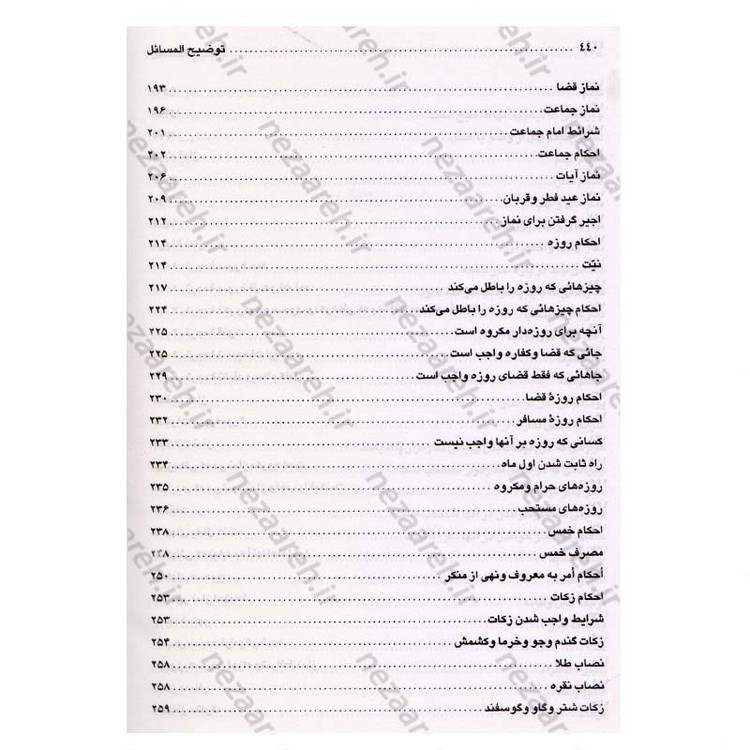 ٤٤٠ ........ توضیح المسائل
نماز قضا ........ ۱۹۳
نماز جماعت ........ ۱۹۶
شرائط امام جماعت ........ ۲۰۱
احکام جماعت ........ ۲۰۲
نماز آیات ........ ۲۰۶
نماز عید فطر وقربان ........ ۲۰۹
اجیر گرفتن برای نماز ........ ۲۱۲
احکام روزه ........ ۲۱۴
نیّت ........ ۲۱۴
چیزهائی که روزه را باطل می‌کند ........ ۲۱۷
احکام چیزهائی که روزه را باطل می‌کند ........ ۲۲۴
آنچه برای روزه‌دار مکروه است ........ ۲۲۵
جائی که قضا وکفاره واجب است ........ ۲۲۵
جاهائی که فقط قضای روزه واجب است ........ ۲۲۹
احکام روزهٔ قضا ........ ۲۳۰
احکام روزهٔ مسافر ........ ۲۳۲
کسانی که روزه بر آنها واجب نیست ........ ۲۳۳
راه ثابت شدن اول ماه ........ ۲۳۴
روزه‌های حرام ومکروه ........ ۲۳۵
روزه‌های مستحب ........ ۲۳۶
احکام خمس ........ ۲۳۸
مصرف خمس ........ ۲۴۸
أحکام أمر به معروف ونهی از منکر ........ ۲۵۰
احکام زکات ........ ۲۵۳
شرایط واجب شدن زکات ........ ۲۵۳
زکات گندم وجو وخرما وکشمش ........ ۲۵۴
نصاب طلا ........ ۲۵۸
نصاب نقره ........ ۲۵۸
زکات شتر وگاو وگوسفند ........ ۲۵۹
nezaareh.ir